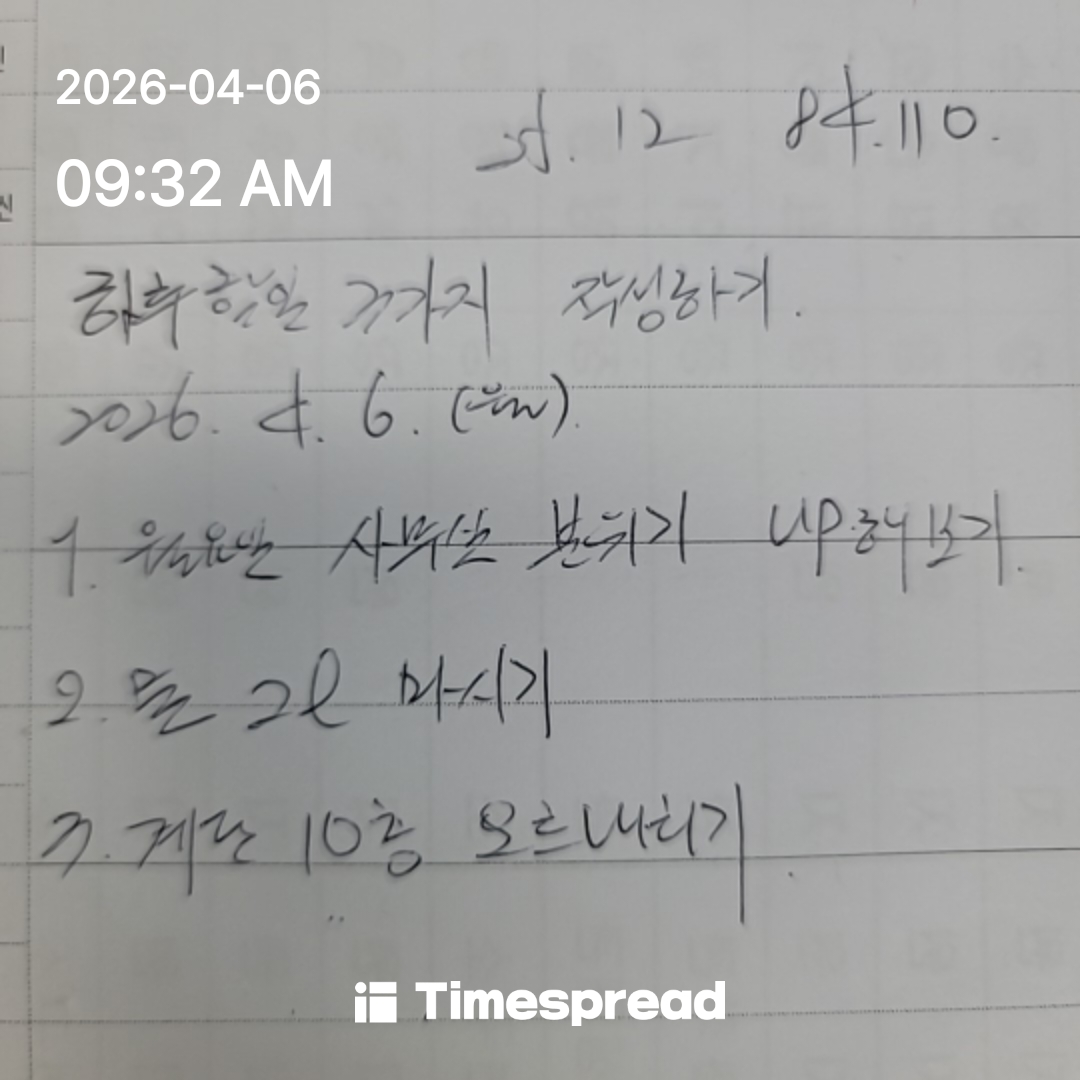 2026-04-06
09:32 AM
12 84.110.
하루 할일 3가지 작성하기.
2026. 4. 6. (월).
1. 월요일 사무실 분위기 UP해보기.
2. 물 2ℓ 마시기
3. 계단 10층 오르내리기.
Timespread